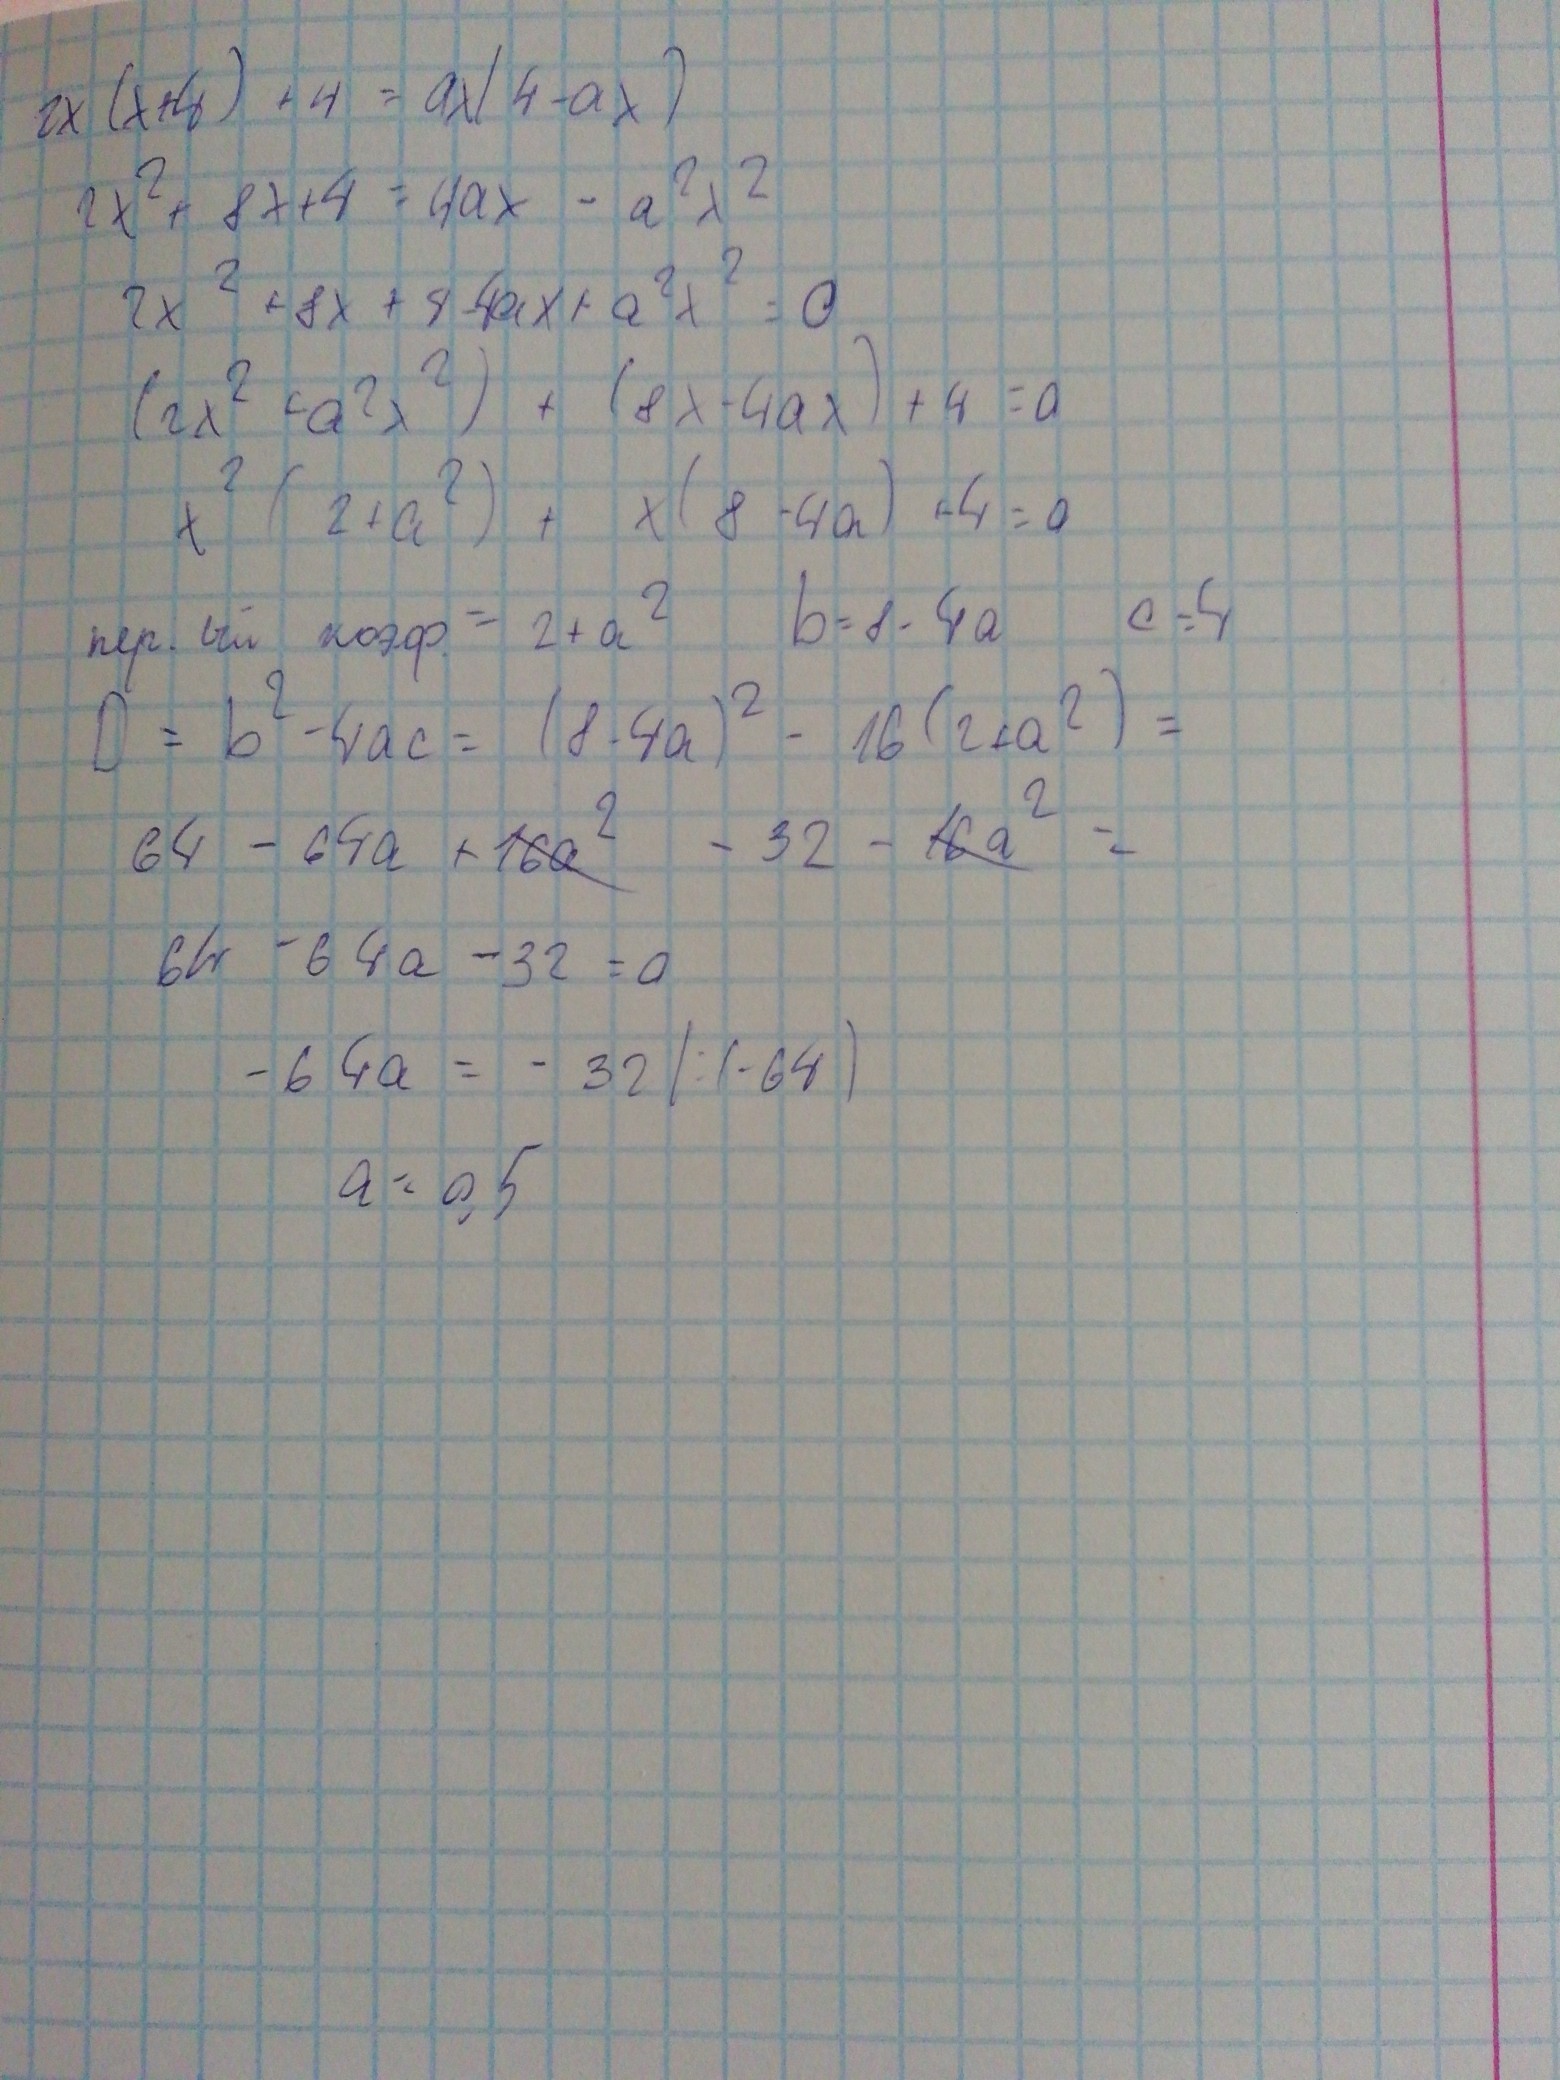 2x(x+4) +4 = ax(4-ax)
2x² + 8x+4 = 4ax - a²x²
2x² +8x + 4-4ax+a²x² = 0
(2x² +a²x²) + (8x-4ax)+4=0
x²(2+a²) + x(8-4a) +4=0
пер.ый коэф.= 2+a² b=8-4a c=4
D = b²-4ac= (8-4a)² - 16(2+a²) =
64 - 64a +16a² - 32 - 16a² =
64 -64a -32 =0
-64a = - 32 |:(-64)
a= 0,5